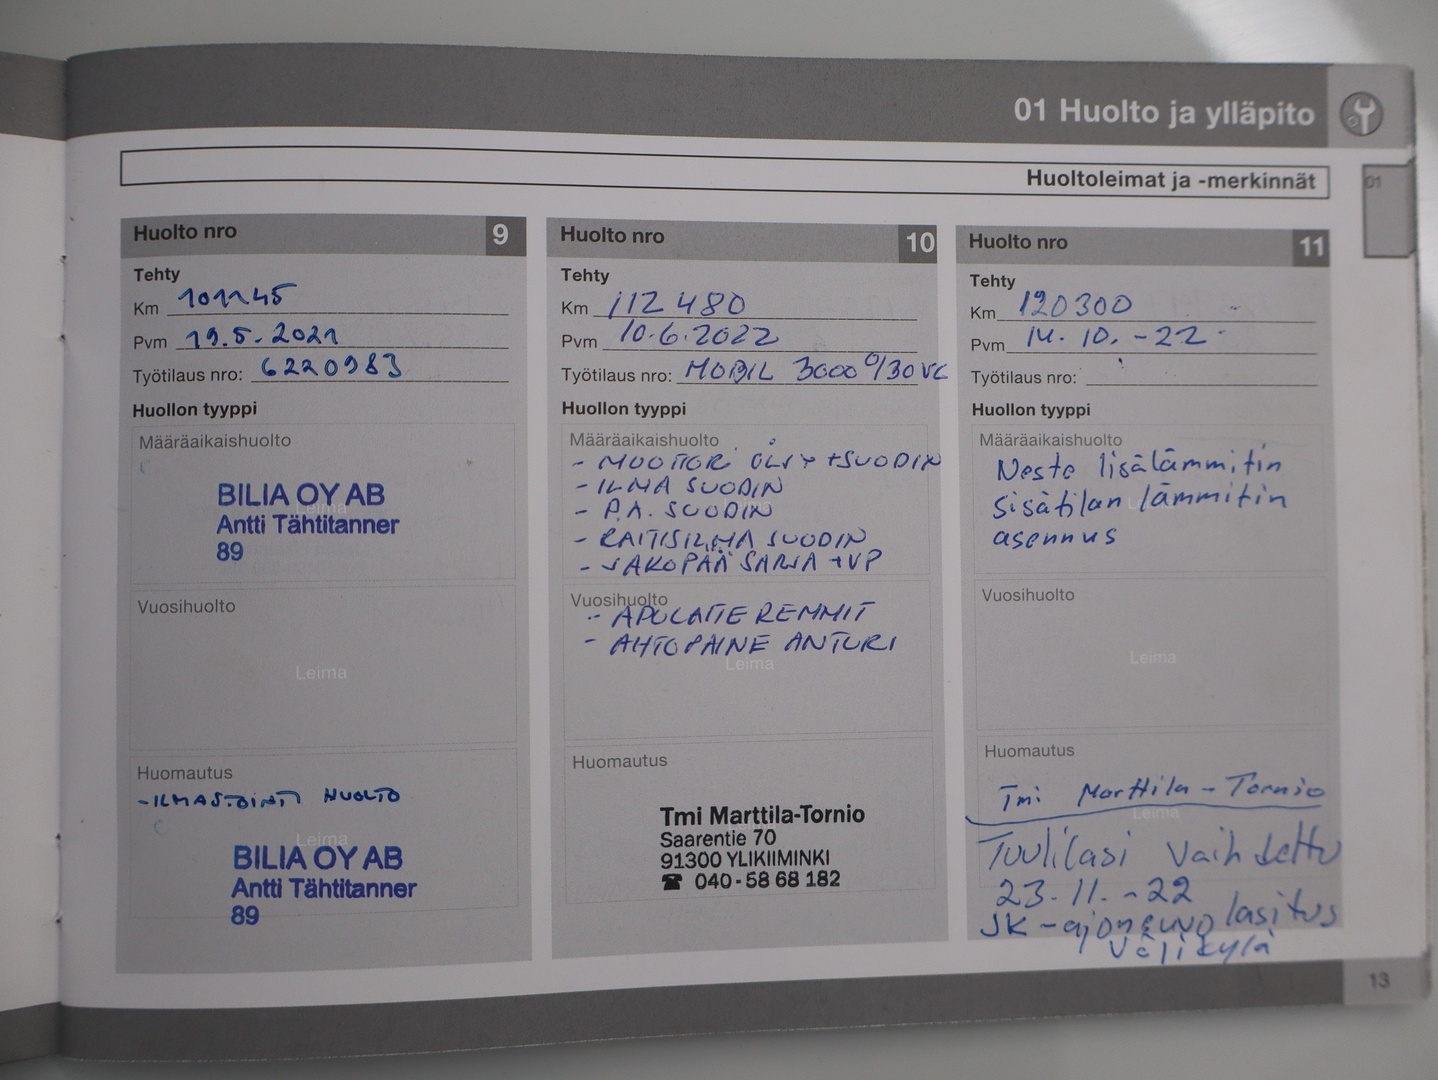 01 Huolto ja ylläpito
Huoltoleimat ja -merkinnät
01
Huolto nro 9
Tehty
Km 101145
Pvm 19.5.2021
Työtilaus nro: 6220983
Huollon tyyppi
Määräaikaishuolto
Leima
BILIA OY AB
Antti Tähtitanner
89
Vuosihuolto
Leima
Huomautus
-ILMASTOINTI HUOLTO
Leima
BILIA OY AB
Antti Tähtitanner
89
Huolto nro 10
Tehty
Km 112 480
Pvm 10.6.2022
Työtilaus nro: MOBIL 3000 0/30 VC
Huollon tyyppi
Määräaikaishuolto
- MOOTTORI ÖLJY +SUODIN
- ILMA SUODIN
- P.A. SUODIN
- RAITISILMA SUODIN
- JAKOPÄÄ SARJA +VP
Vuosihuolto
- APULAITE REMMIT
- AHTOPAINE ANTURI
Leima
Huomautus
Tmi Marttila-Tornio
Saarentie 70
91300 YLIKIIMINKI
☎ 040-58 68 182
Huolto nro 11
Tehty
Km 120300
Pvm 14.10.-22
Työtilaus nro:
Huollon tyyppi
Määräaikaishuolto
Neste lisälämmitin
sisätilan lämmitin
asennus
Vuosihuolto
Leima
Huomautus
Tmi Marttila-Tornio
Leima
Tuulilasi vaihdettu
23.11.-22
JK-ajoneuvolasitus
Välikylä
13